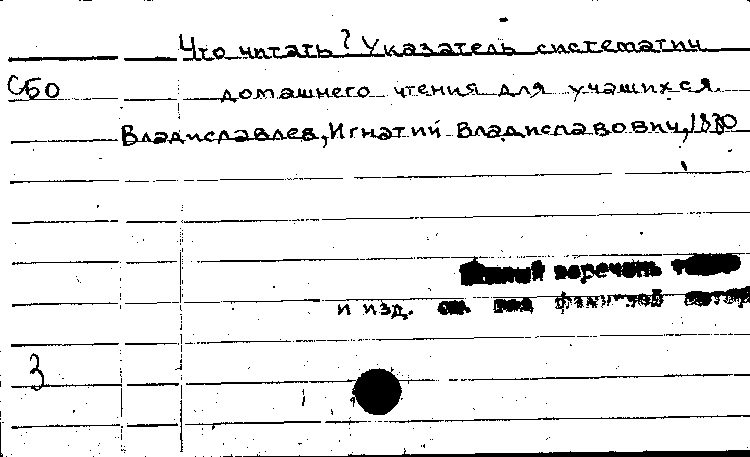 Что читать? Указатель систематич
СБО домашнего чтения для учащихся.
Владиславлев, Игнатий Владиславович, 1880
перечень
и изд. см. под фамилией автор
3